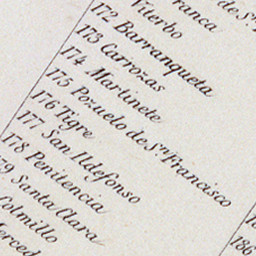 de Sn
ranca
Viterbo
172 Barranqueta
173 Carrozas
174 Martinete
175 Pozuelo de Sn Francisco
176 Tigre
177 San Ildefonso
178 Penitencia
179 Santa Clara
Colmillo
erced
186